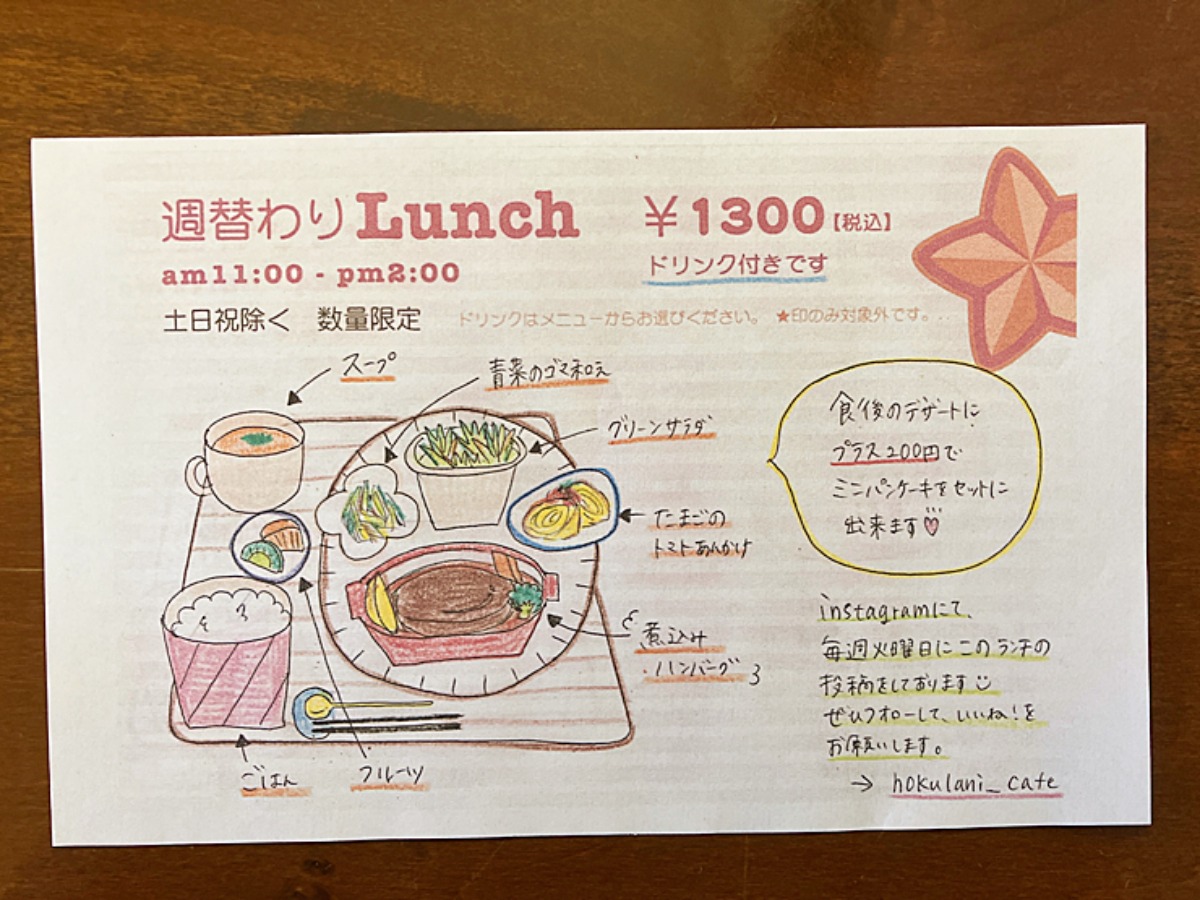 週替わりLunch
¥1300【税込】
am11:00 - pm2:00
ドリンク付きです
土日祝除く 数量限定
ドリンクはメニューからお選びください。 ★印のみ対象外です。..
スープ
青菜のゴマ和え
グリーンサラダ
たまごの
トマトあんかけ
煮込み
ハンバーグ
ごはん
フルーツ
食後のデザートに
プラス200円で
ミニパンケーキをセットに
出来ます♡
instagramにて、
毎週火曜日にこのランチの
投稿をしております
ぜひフォローして、いいね!を
お願いします。
→ hokulani_cafe